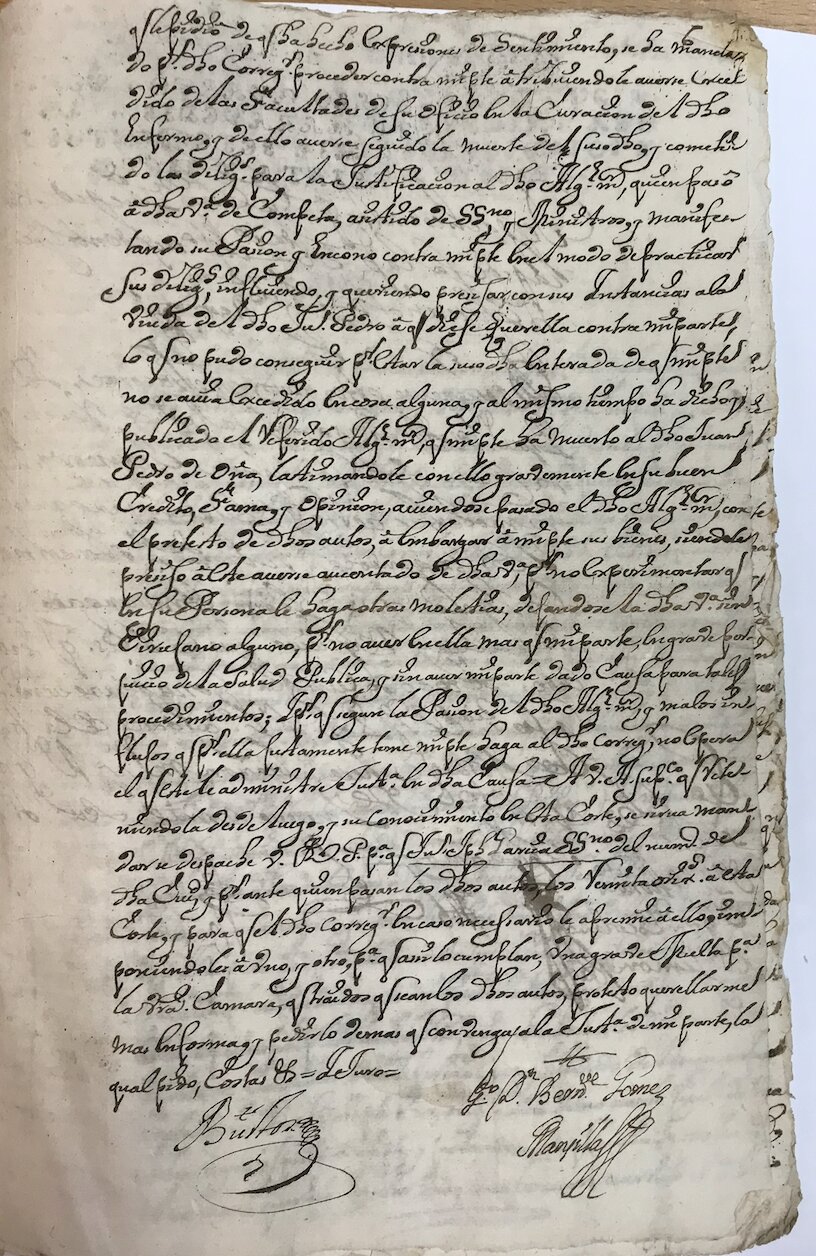 q̃ le pidio de q̃ ha hecho expresiones de Sentimiento, se ha manda
do p.r dho Correg.r proceder contra mi p.te âtribuiendole averse exce
dido de las Facultades de su Oficio en la Curacion del dho
Enfermo, y de ello averse seguido la muerte del suso dho, y cometi
do las dilig.s para la Justificacion al dho Alg.l m.r, quien pasô
â dha v.a de Competa, asistido de SS.no, y Ministros, y manifes
tando su Pasion y encono contra mi p.te en el modo de practicar
Sus dilig.s, influiendo, y queriendo precisar con sus Instancias a la
viuda del dho Ju.o Pedro â q̃ diese querella contra mi parte,
lo q̃ no pudo conseguir p.r estar la suso dha enterada de q̃ mi p.te
no se avia excedido en cosa alguna, y al mismo tiempo ha dicho, y
publicado el referido Alg.l m.r, q̃ mi p.te ha muerto al dho Juan
Pedro de Oña, lastimandole con ello gravemente en su buen
Credito, Fama, y Opinion, aviendose pasado el dho Alg.l m.r, con
el pretesto de dhos autos, â embargar â mi p.te sus bienes, siendole
preciso â este averse aucentado de dha v.a p.r no experimentar q̃
en su Persona le haga otras molestias, dejandose la dha v.a sin
Cirujano alguno, p.r no aver en ella mas q̃ mi parte, en grave per
juicio de la Salud Publica, y sin aver mi parte dado Causa para tales
procedimientos; Y p.r q̃ segun la Pasion del dho Alg.l m.r, y malos in
flujos q̃ p.r ella justamente teme mi p.te haga al dho Correg.r, no espera
el q̃ este le administre Just.a en dha Causa = A V. A. sup.co q̃ rete
niendola desde luego, y su conocimiento en esta Corte, se sirva man
dar se despache v. R. P. p.a q̃ Ju.o Jph Garcia SS.no del num.o de
dha Ciu.d y p.r ante quien pasan los dhos autos, los remita orig.s â esta
Corte, y para q̃ el dho Correg.r en caso necessario le apremie â ello, im
poniendoles â uno, y otro, p.a q̃ asi lo cumplan, una grave Multa p.a
la vra. Camara, q̃ traidos q̃ sean los dhos autos, protesto querellarme
mas en forma, y pedir lo demas q̃ convenga a la Just.a de mi parte, la
qual pido, Costas &.a = Juro =
Bustos
L.do D.n Bern.do Gomez
Mansilla